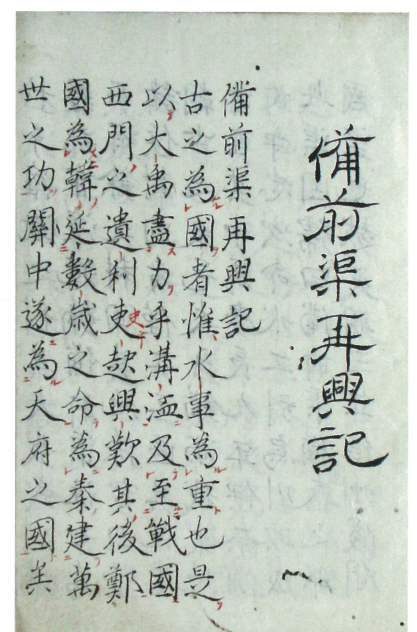 備前渠再興記
備前渠再興記
古之為國者惟水事為重也是
以大禹盡力乎溝洫及至戰國
西門之遺利吏起興歎其後鄭
史
國為韓延數歲之命為秦建萬
世之功關中遂為天府之國矣